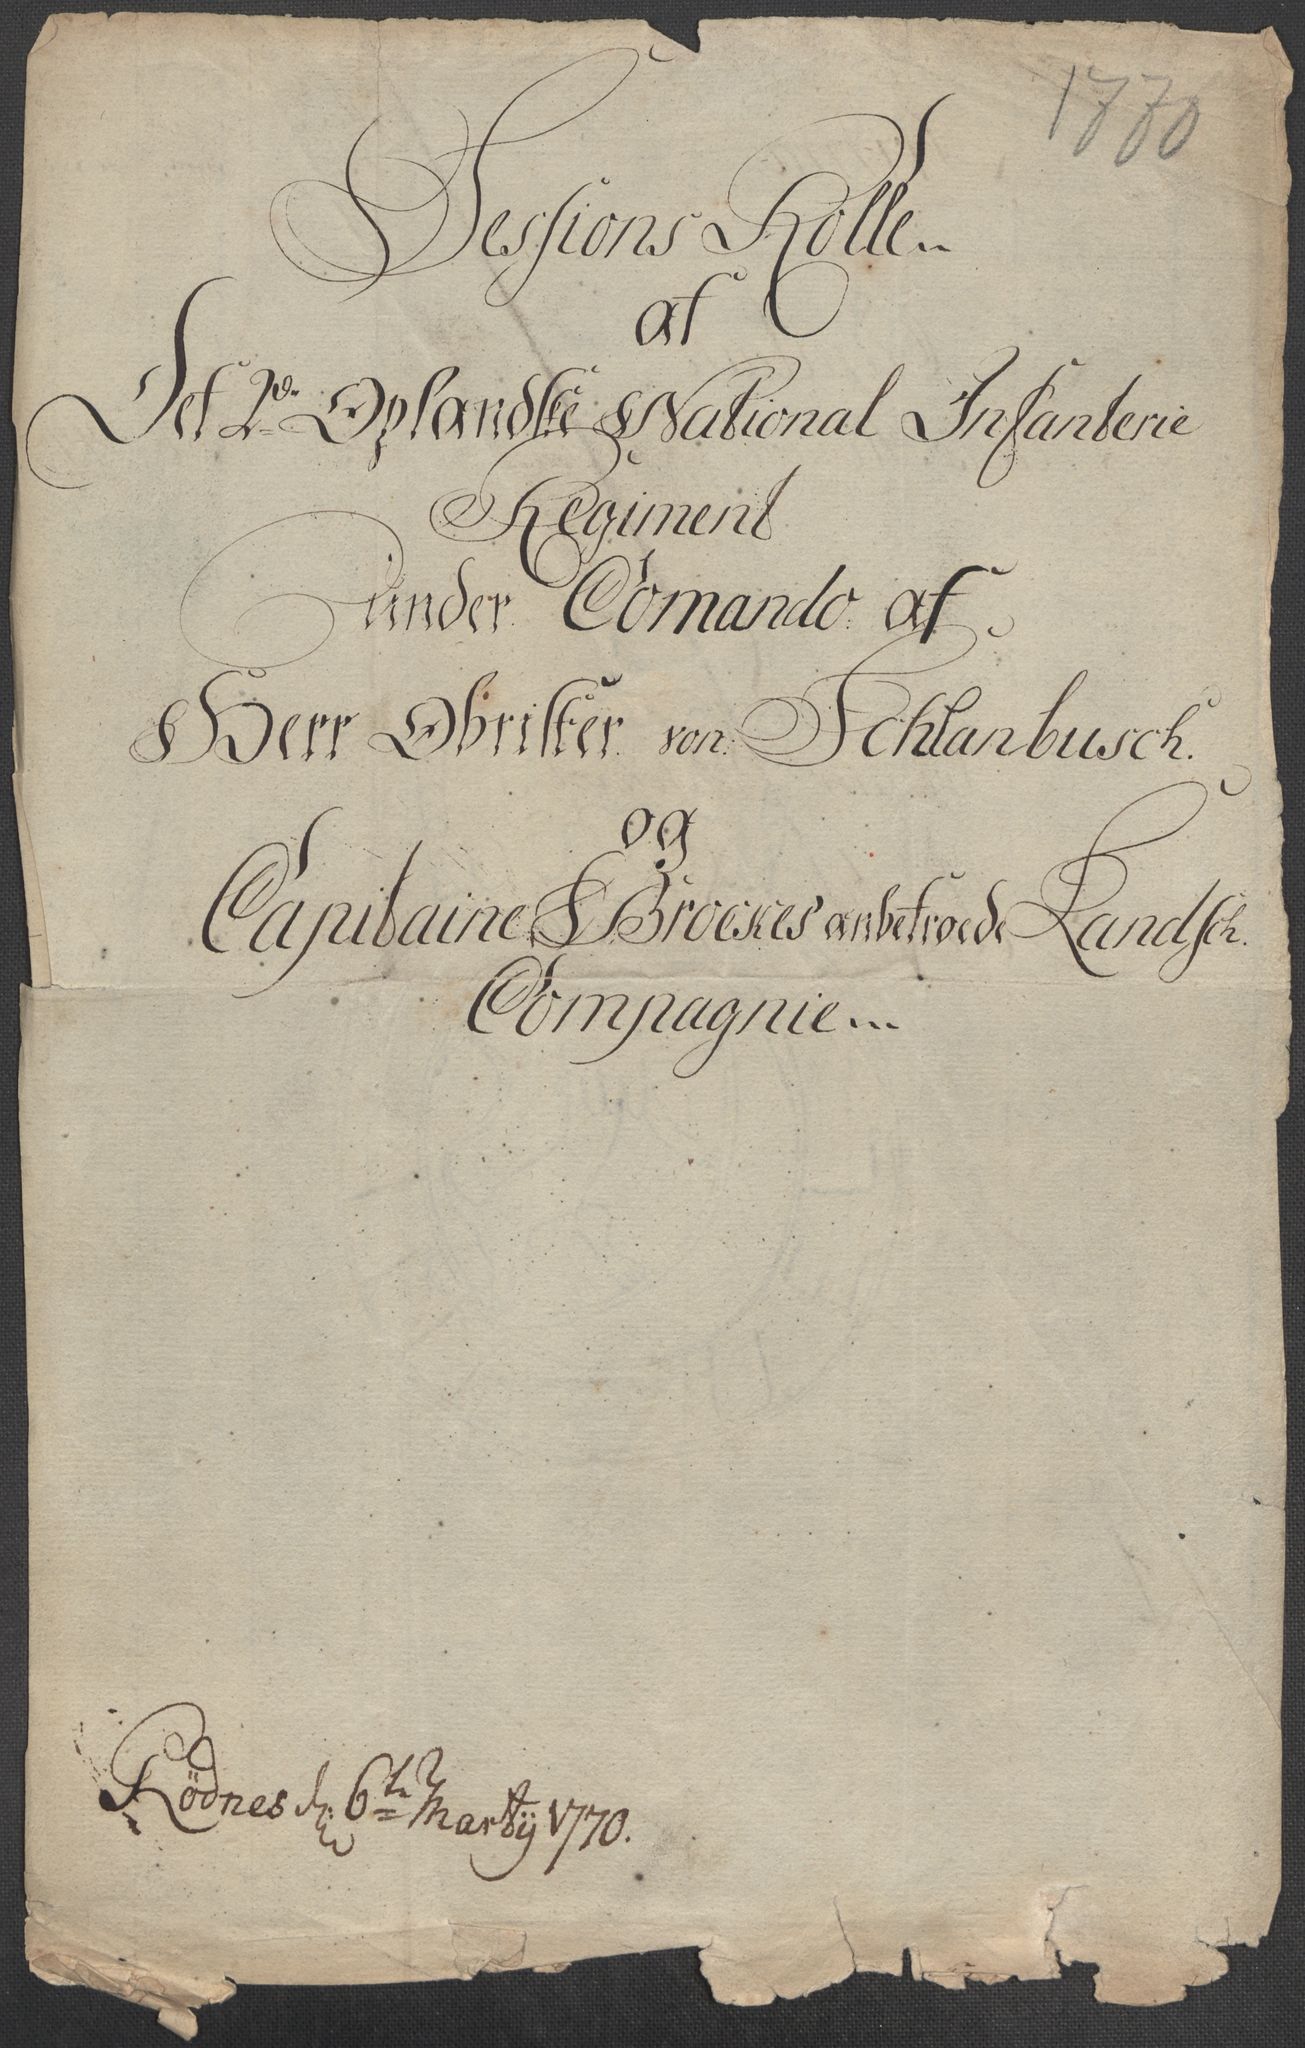 1770
Sessions Rolle
af
Det 2de Oplandske National Infanterie
Regiment
under Comando af
Herr Obrister von Schlanbusch.
og
Capitaine Brockes anbetroede Landsch.
Compagnie
Rödnes d: 6te Martÿ 1770.